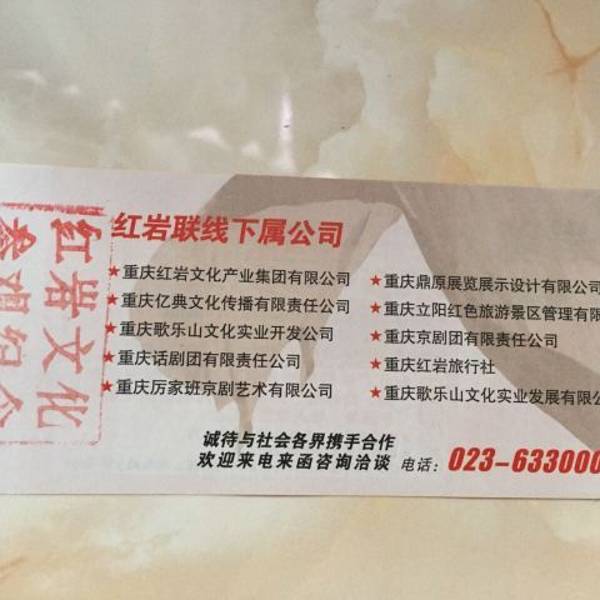 红岩联线下属公司
★重庆红岩文化产业集团有限公司
★重庆亿典文化传播有限责任公司
★重庆歌乐山文化实业开发公司
★重庆话剧团有限责任公司
★重庆厉家班京剧艺术有限公司
★重庆鼎原展览展示设计有限公
★重庆立阳红色旅游景区管理有限
★重庆京剧团有限责任公司
★重庆红岩旅行社
★重庆歌乐山文化实业发展有限公
诚待与社会各界携手合作
欢迎来电来函咨询洽谈 电话：023-633000
红岩文化
参观纪念